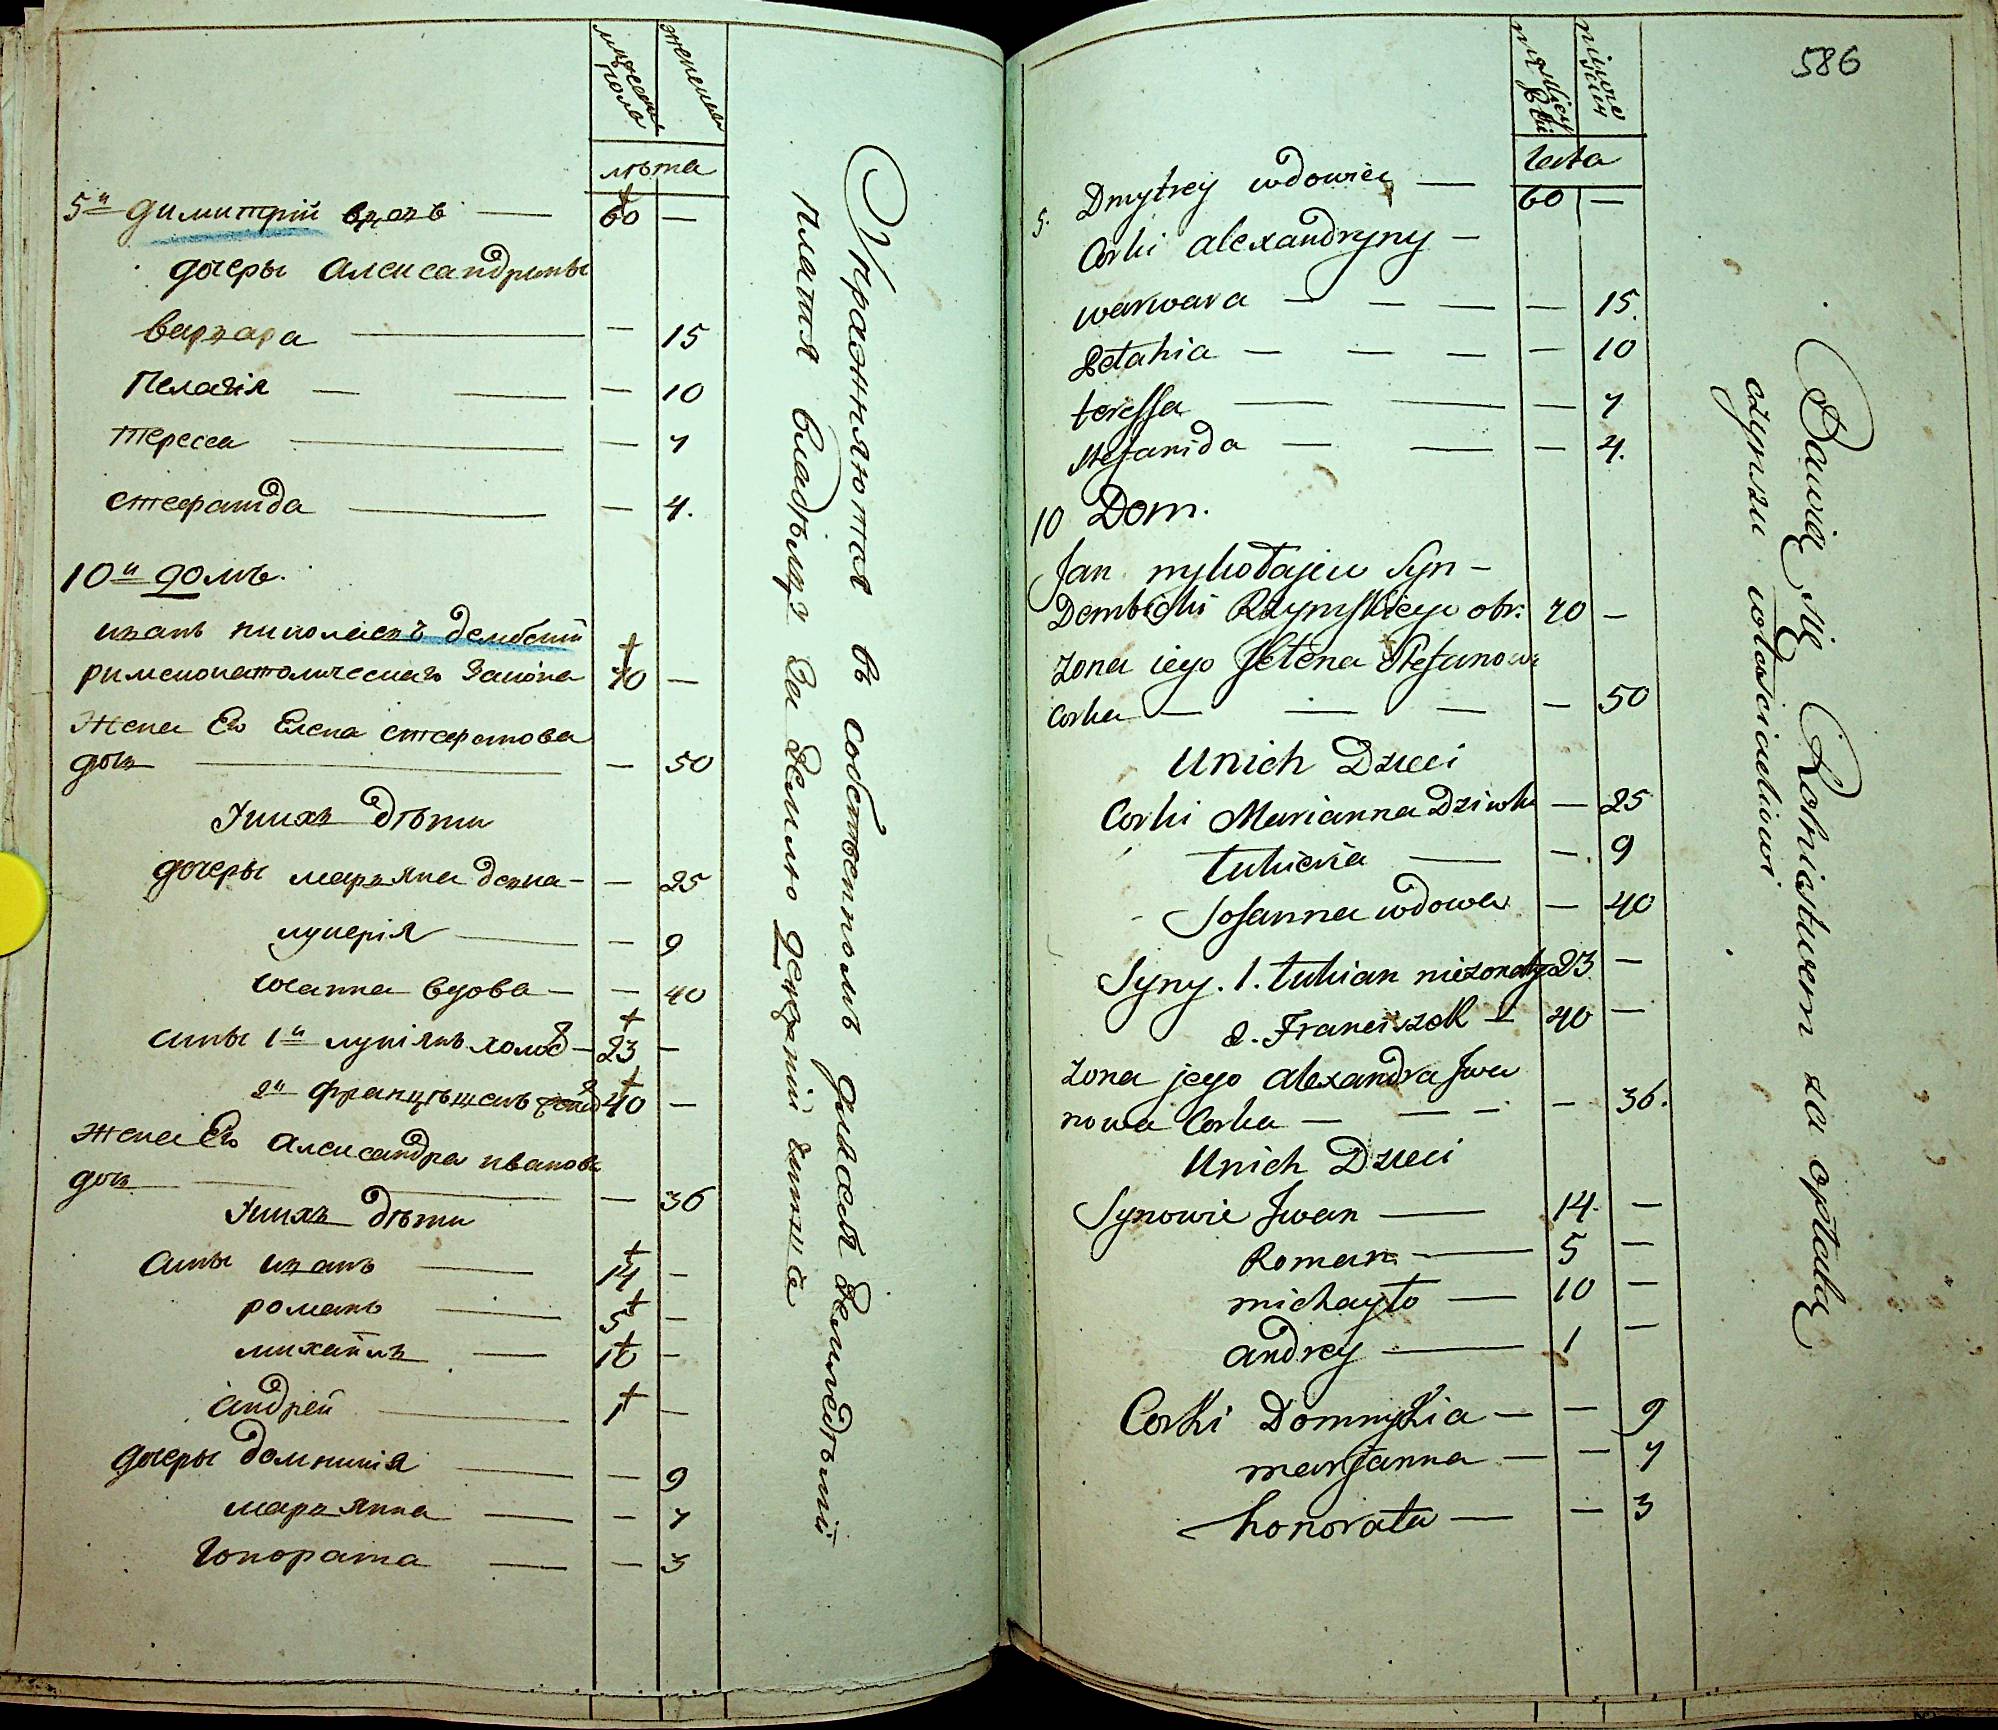 мужеска пола
женска
лѣта
5й Димитрій вдовъ — 60 —
дочеры Александрины
Варвара — — 15
Пелагія — — 10
Тересса — — 7
Стефанида — — 4.
10й домъ.
Иванъ Николаевъ Дембскій
римскокатолическаго закона 70 —
Жена Его Елена Стефанова
дочь — — 50
У нихъ дѣти
дочеры Марьяна девка — — 25
Лукерія — — 9
Юсанна вдова — — 40
сыны 1й Лукіянъ холос — 23 —
2й Францѣшекъ 40 —
Жена Его Александра Иванова
дочь — — 36
У нихъ дѣти
сыны Иванъ — 14 —
Романъ — 5 —
Михайлъ — 10 —
Андрей — 1 —
дочеры Домникія — — 9
Марьянна — — 7
Гонората — — 3
Упражняются въ собственномъ
земледѣліи
платя владѣлцу за землю
чинша
586
męskiey płci
lata
5. Dmytrey wdowiec — 60 —
Corki alexandryny —
warwara — — — — 15.
Pełahia — — — — 10
teressa — — — 7
Stefanida — — — 4.
10 Dom.
Jan mykołajew Syn —
Dembicki Rzymskiego obr: 70 —
żona iego Helena Stefanowa
Corka — — — — 50
Unich Dzieci
Corki Marianna Dziwka — 25
Łukieria — — 9
Josanna wdowa — 40
Syny. 1. Łukian nieżonaty 23 —
2. Franciszek — 40 —
żona jego alexandra Jwa
nowa Corka — — — — 36.
Unich Dzieci
Synowie Jwan — 14. —
Roman — 5 —
michayło — 10 —
andrey — 1 —
Corki Domnykia — — 9
marjanna — — 7
honorata — — 3
Bawią się Rolnictwem za opłatą
czynszu właścicielowi